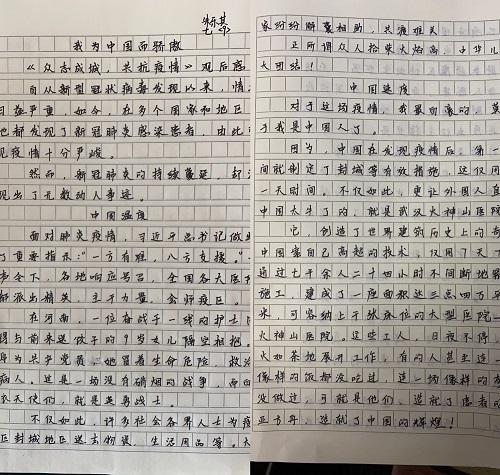 我为中国而骄傲
《众志成城，共抗疫情》观后感
自从新型冠状病毒发现以来，情
日益严重，如今，在多个国家和地区
也都发现了新冠肺炎感染患者，由此可
见疫情十分严峻。
然而，新冠肺炎的持续蔓延，却
现出了无数动人事迹。
中国温度
面对肺炎疫情，习近平总书记做出
了重要指示："一方有难，八方支援。"
令下，各地响应号召，全国各大医院
都派出精英，主干力量，会师疫区。
在河南，一位奋战于一线的护士
妈与前来送饺子的9岁女儿隔空相抱。
身为共产党员，她冒着生命危险，救治
病人。这是一场没有硝烟的战争，而白
衣天使们，就是英勇战士。
不仅如此，许多社会各界人士为疫
区封城地区送去物资，生活用品等。大
家纷纷解囊相助，共渡难关
正所谓众人拾柴火焰高，中华儿
大团结！
中国速度
对于这场疫情，我最自豪的莫
于我是中国人了。
因为，中国在发现疫情后，第一
间就制定了封城等有效措施，这仅用
一天时间。不仅如此，更让外国人直
中国太牛了的，就是武汉火神山医院
它，创造了世界建筑历史上的奇
中国靠自己高超的技术，仅用7天
通过七千余人二十四小时不间断地努
施工，建成了一座面积达三点四万
米，可容纳上千张床位的大型医院—
火神山医院。这些工人，日夜不停，
火如荼地展开工作，有的人甚至连
像样的饭都没吃过，连一场像样的
没做过，可就是他们，造就了患者的
亚方舟，造就了中国的辉煌！